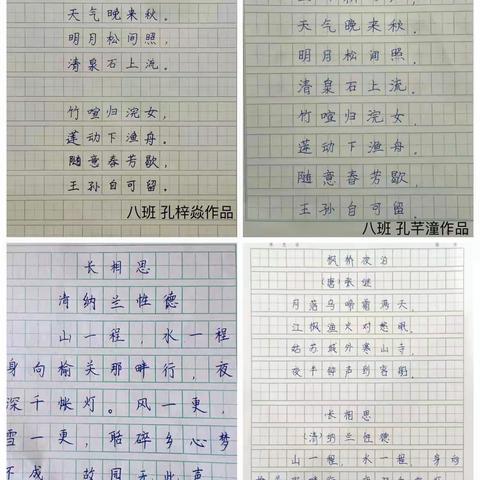 天气晚来秋。
明月松间照,
清泉石上流。
竹喧归浣女,
莲动下渔舟。
随意春芳歇,
王孙自可留。
八班 孔梓焱作品
天气晚来秋。
明月松间照,
清泉石上流。
竹喧归浣女,
莲动下渔舟。
随意春芳歇,
王孙自可留。
八班 孔芊潼作品
长相思
清纳兰性德
山一程,水一程
身向榆关那畔行,夜
深千帐灯。风一更,
雪一更,聒碎乡心梦
不成,故园无此声
枫桥夜泊
(唐)张继
月落乌啼霜满天,
江枫渔火对愁眠。
姑苏城外寒山寺,
夜半钟声到客船。
长相思
(清)纳兰性德
山一程,水一程,身向